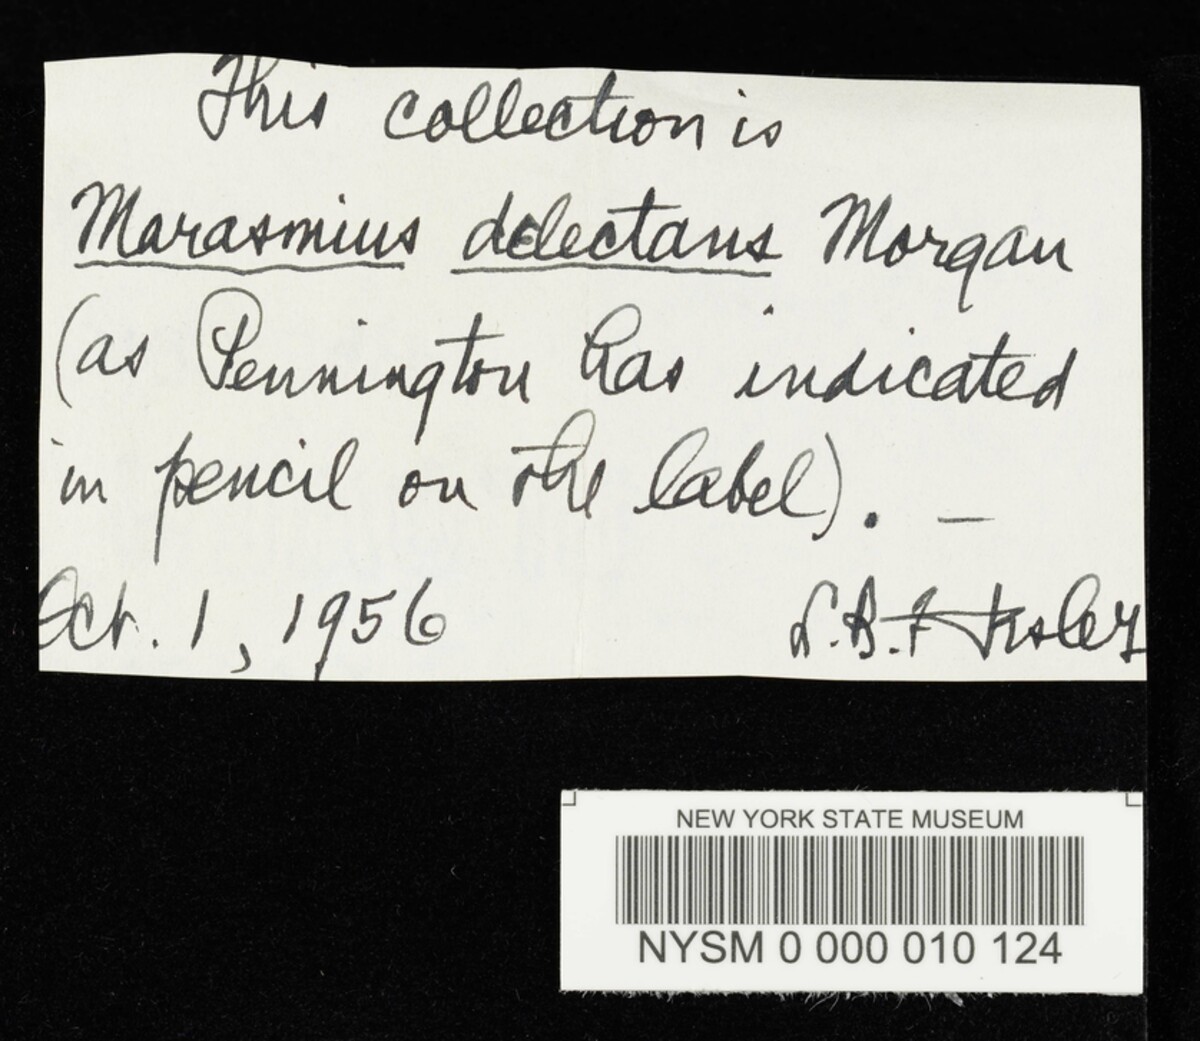 This collection is
Marasmius delectans Morgan
(as Pennington has indicated
in pencil on the label). —
Oct. 1, 1956
L.B.
NEW YORK STATE MUSEUM
NYSM 0 000 010 124